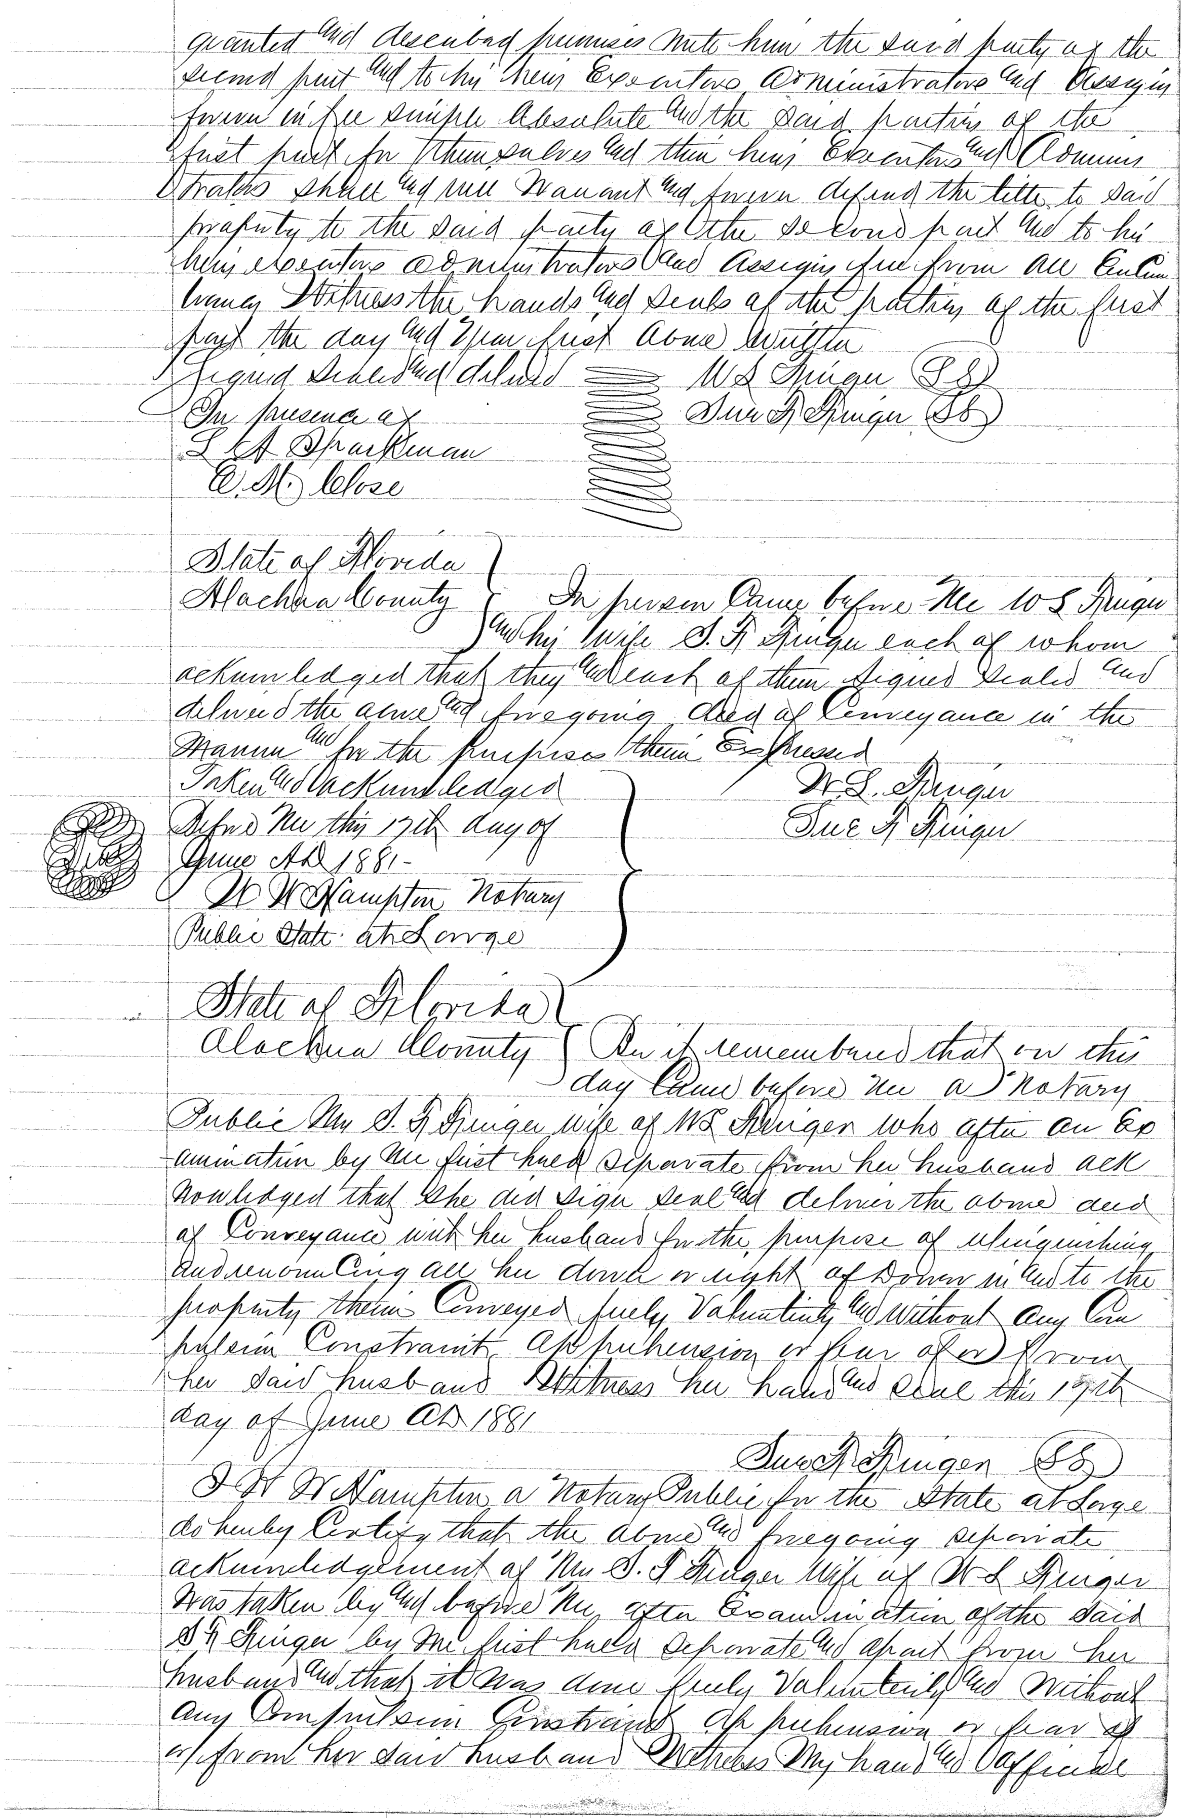 granted and described premises unto him the said party of the
second part and to his heirs Executors Administrators and Assigns
forever in fee simple Absolute and the said parties of the
first part for themselves and their heirs Executors and Adminis
trators shall and will Warrant and forever defend the title to said
property to the said party of the second part and to his
heirs executors administrators and Assigns free from all Encum
brances Witness the hands and seals of the parties of the first
part the day and year first above written
Signed Sealed and delivered W S Ringer
In presence of Sue R Ringer
S A Sparkman
E. M. Close
State of Florida
Alachua County In person Came before Me W S Ringer
and his wife S. R Ringer each of whom
acknowledged that they and each of them signed sealed and
delivered the above and foregoing deed of Conveyance in the
Manner and for the purposes therein Expressed
Taken and acknowledged W. S. Ringer
Before Me this 17th day of Sue R Ringer
June AD 1881-
W W Hampton Notary
Public State at Large
State of Florida
Alachua County Be it remembered that on this
day Came before me a Notary
Public Mrs S. R Ringer wife of W S Ringer who after an Ex
amination by me first had separate from her husband ack
nowledged that she did sign seal and deliver the above deed
of Conveyance with her husband for the purpose of relinquishing
and renouncing all her dower or right of Dower in and to the
property therein Conveyed freely Voluntarily and without any Com
pulsion Constraint Apprehension or fear of or from
her said husband Witness her hand and seal this 17th
day of June AD 1881
Sue R Ringer
I W W Hampton a Notary Public for the State at Large
do hereby Certify that the above and foregoing separate
acknowledgement of Mrs S. R Ringer Wife of W S Ringer
Was taken by and before Me, after Examination of the said
S R Ringer by Me first had separate and apart from her
husband and that it was done freely Voluntarily and Without
any Compulsion Constraint Apprehension or fear of
or from her said husband Witness My hand and official